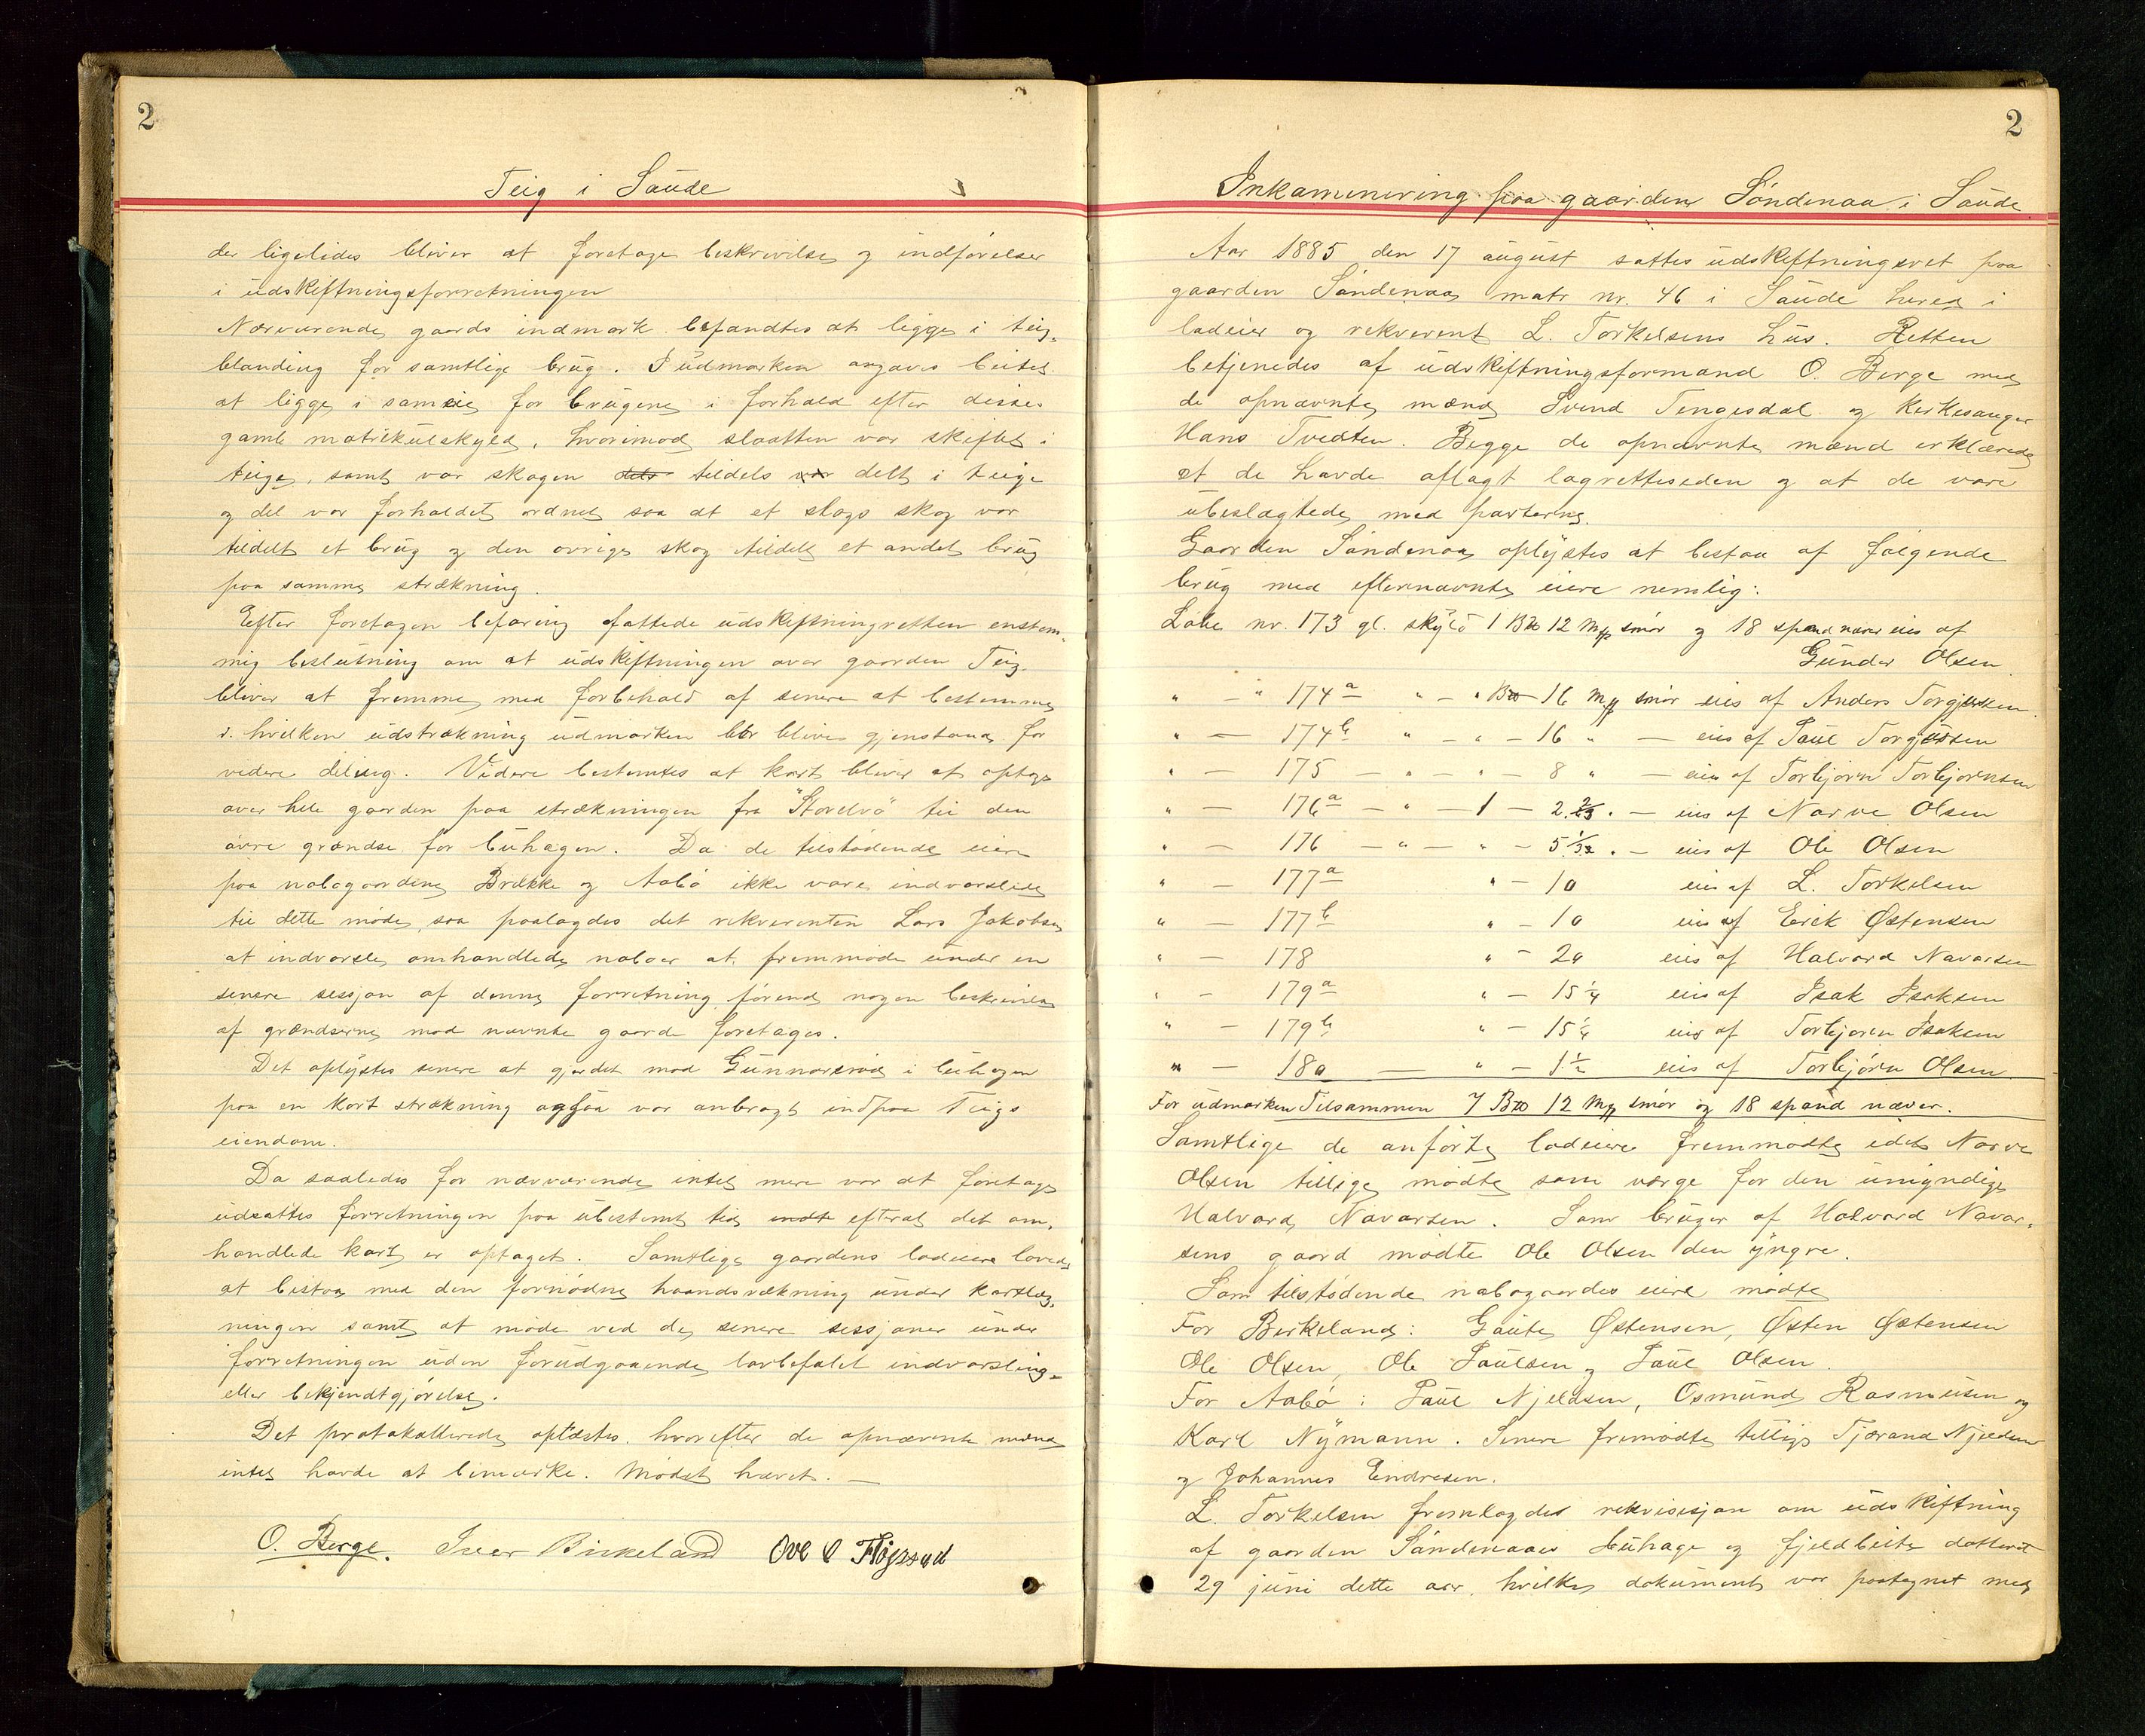 2
Teig i Saude
der ligeledes bliver at foretage beskrivelse og indførelser
i udskiftningsforretningen
Nærværende gaards indmark befandtes at ligge i teig-
blanding for samtlige brug. I udmarken angaves beitet
at ligge i sameie for brugene i forhold efter disses
gamle matrikulskyld, hvorimod slaatten var skiftet i
teige, samt var skogen tildels delt i teige
og del var forholdet ordnet saa at et slags skog var
tildelt et brug og den øvrige skog tildelt et andet brug
paa samme strækning.
Efter foretagen befaring fattede udskiftningretten enstem-
mig beslutning om at udskiftningen over gaarden Teig
bliver at fremme med forbehold af senere at bestemme
i hvilken udstrækning udmarken bør blive gjenstand for
videre deling. Videre bestemtes at kart bliver at optage
over hele gaarden paa strækningen fra "Storelvø" til den
øvre grændse for buhagen. Da de tilstødende eiere
paa nabogaardene Brække og Aabø ikke vare indvarslede
til dette møde, saa paalagdes det rekvirenten Lars Jakobsen
at indvarsle omhandlede naboer at fremmøde under en
senere sessjon af denne forretning førend nogen beskrivelse
af grændserne mod nævnte gaarde foretages.
Det oplystes senere at gjerdet mod Gunnarsrød i buhagen
paa en kort strækning ogsaa var anbragt indpaa Teigs
eiendom.
Da saaledes for nærværende intet mere var at foretage
udsattes forretningen paa ubestemt tid efterat det om-
handlede kart er optaget. Samtlige gaardens lodeiere lovede
at bistaa med den fornødne haandsrækning under kartlæg-
ningen samt at møde ved de senere sessjoner under
forretningen uden forudgaaende lovbefalet indvarsling
eller bekjendtgjørelse.
Det protokollerede oplæstes hvorefter de opnævnte mænd
intet havde at bemærke. Mødet hævet. —
O. Berge. Iver Birkeland Ove O Fløgstad
2
Inkaminering paa gaarden Søndenaa i Saude
Aar 1885 den 17 august sattes udskiftningsret paa
gaarden Søndenaa matr nr. 46 i Saude hered i
lodeier og rekvirent L. Torkelsens hus. Retten
betjenedes af udskiftningsformand O. Berge med
de opnævnte mænd Svend Tengesdal og kirkesanger
Hans Tvedten. Begge de opnævnte mænd erklærede
at de havde aflagt lagretteseden og at de vare
ubeslægtede med parterne.
Gaarden Søndenaa oplystes at bestaa af følgende
brug med efternævnte eiere nemlig:
Løbe nr. 173 gl. skyld 1 Bto 12 Mpp smør og 18 spand næver eies af
Gunder Olsen
" — " 174a " — " Bto 16 Mpp smør eies af Anders Torgjersen
" — 174b " — " — 16 " — eies af Paul Torgersen
" — 175 — " — " — 8 " — eies af Torbjørn Torbjørnsen
" — 176a — " — 1 — 2 2/3 " — eies af Narve Olsen
" — 176 — " — " — 5 1/3 " — eies af Ole Olsen
" — 177a " — 10 eies af L. Torkelsen
" — 177b " — 10 eies af Erik Østensen
" — 178 " — 20 eies af Halvard Navarsen
" — 179a " — 15 1/4 eies af Isak Isaksen
" — 179b " — 15 1/4 eies af Torbjørn Isaksen
" — 180 — " — 1 1/2 eies af Torbjørn Olsen
For udmarken Tilsammen 7 Bto 12 Mpp smør og 18 spand næver.
Samtlige de anførte lodeiere fremmødte idet Narve
Olsen tillige mødte som værge for den umyndige
Halvard Navarsen. Som bruger af Halvard Navar-
sens gaard mødte Ole Olsen den yngre.
Som tilstødende nabogaardes eiere mødte
For Birkeland: Gaute Østensen, Østen Østensen
Ole Olsen, Ole Paulsen og Paul Olsen.
For Aabø: Paul Njeldsen, Osmund Rasmusen og
Karl Nymann. Senere fremødte tillige Tjerand Njeldsen
og Johannes Endresen.
L. Torkelsen fremlagdes rekvisisjon om udskiftning
af gaarden Søndenaaes buhage og fjeldbeite datteret
29 juni dette aar. hvilket dokument var paategnet med